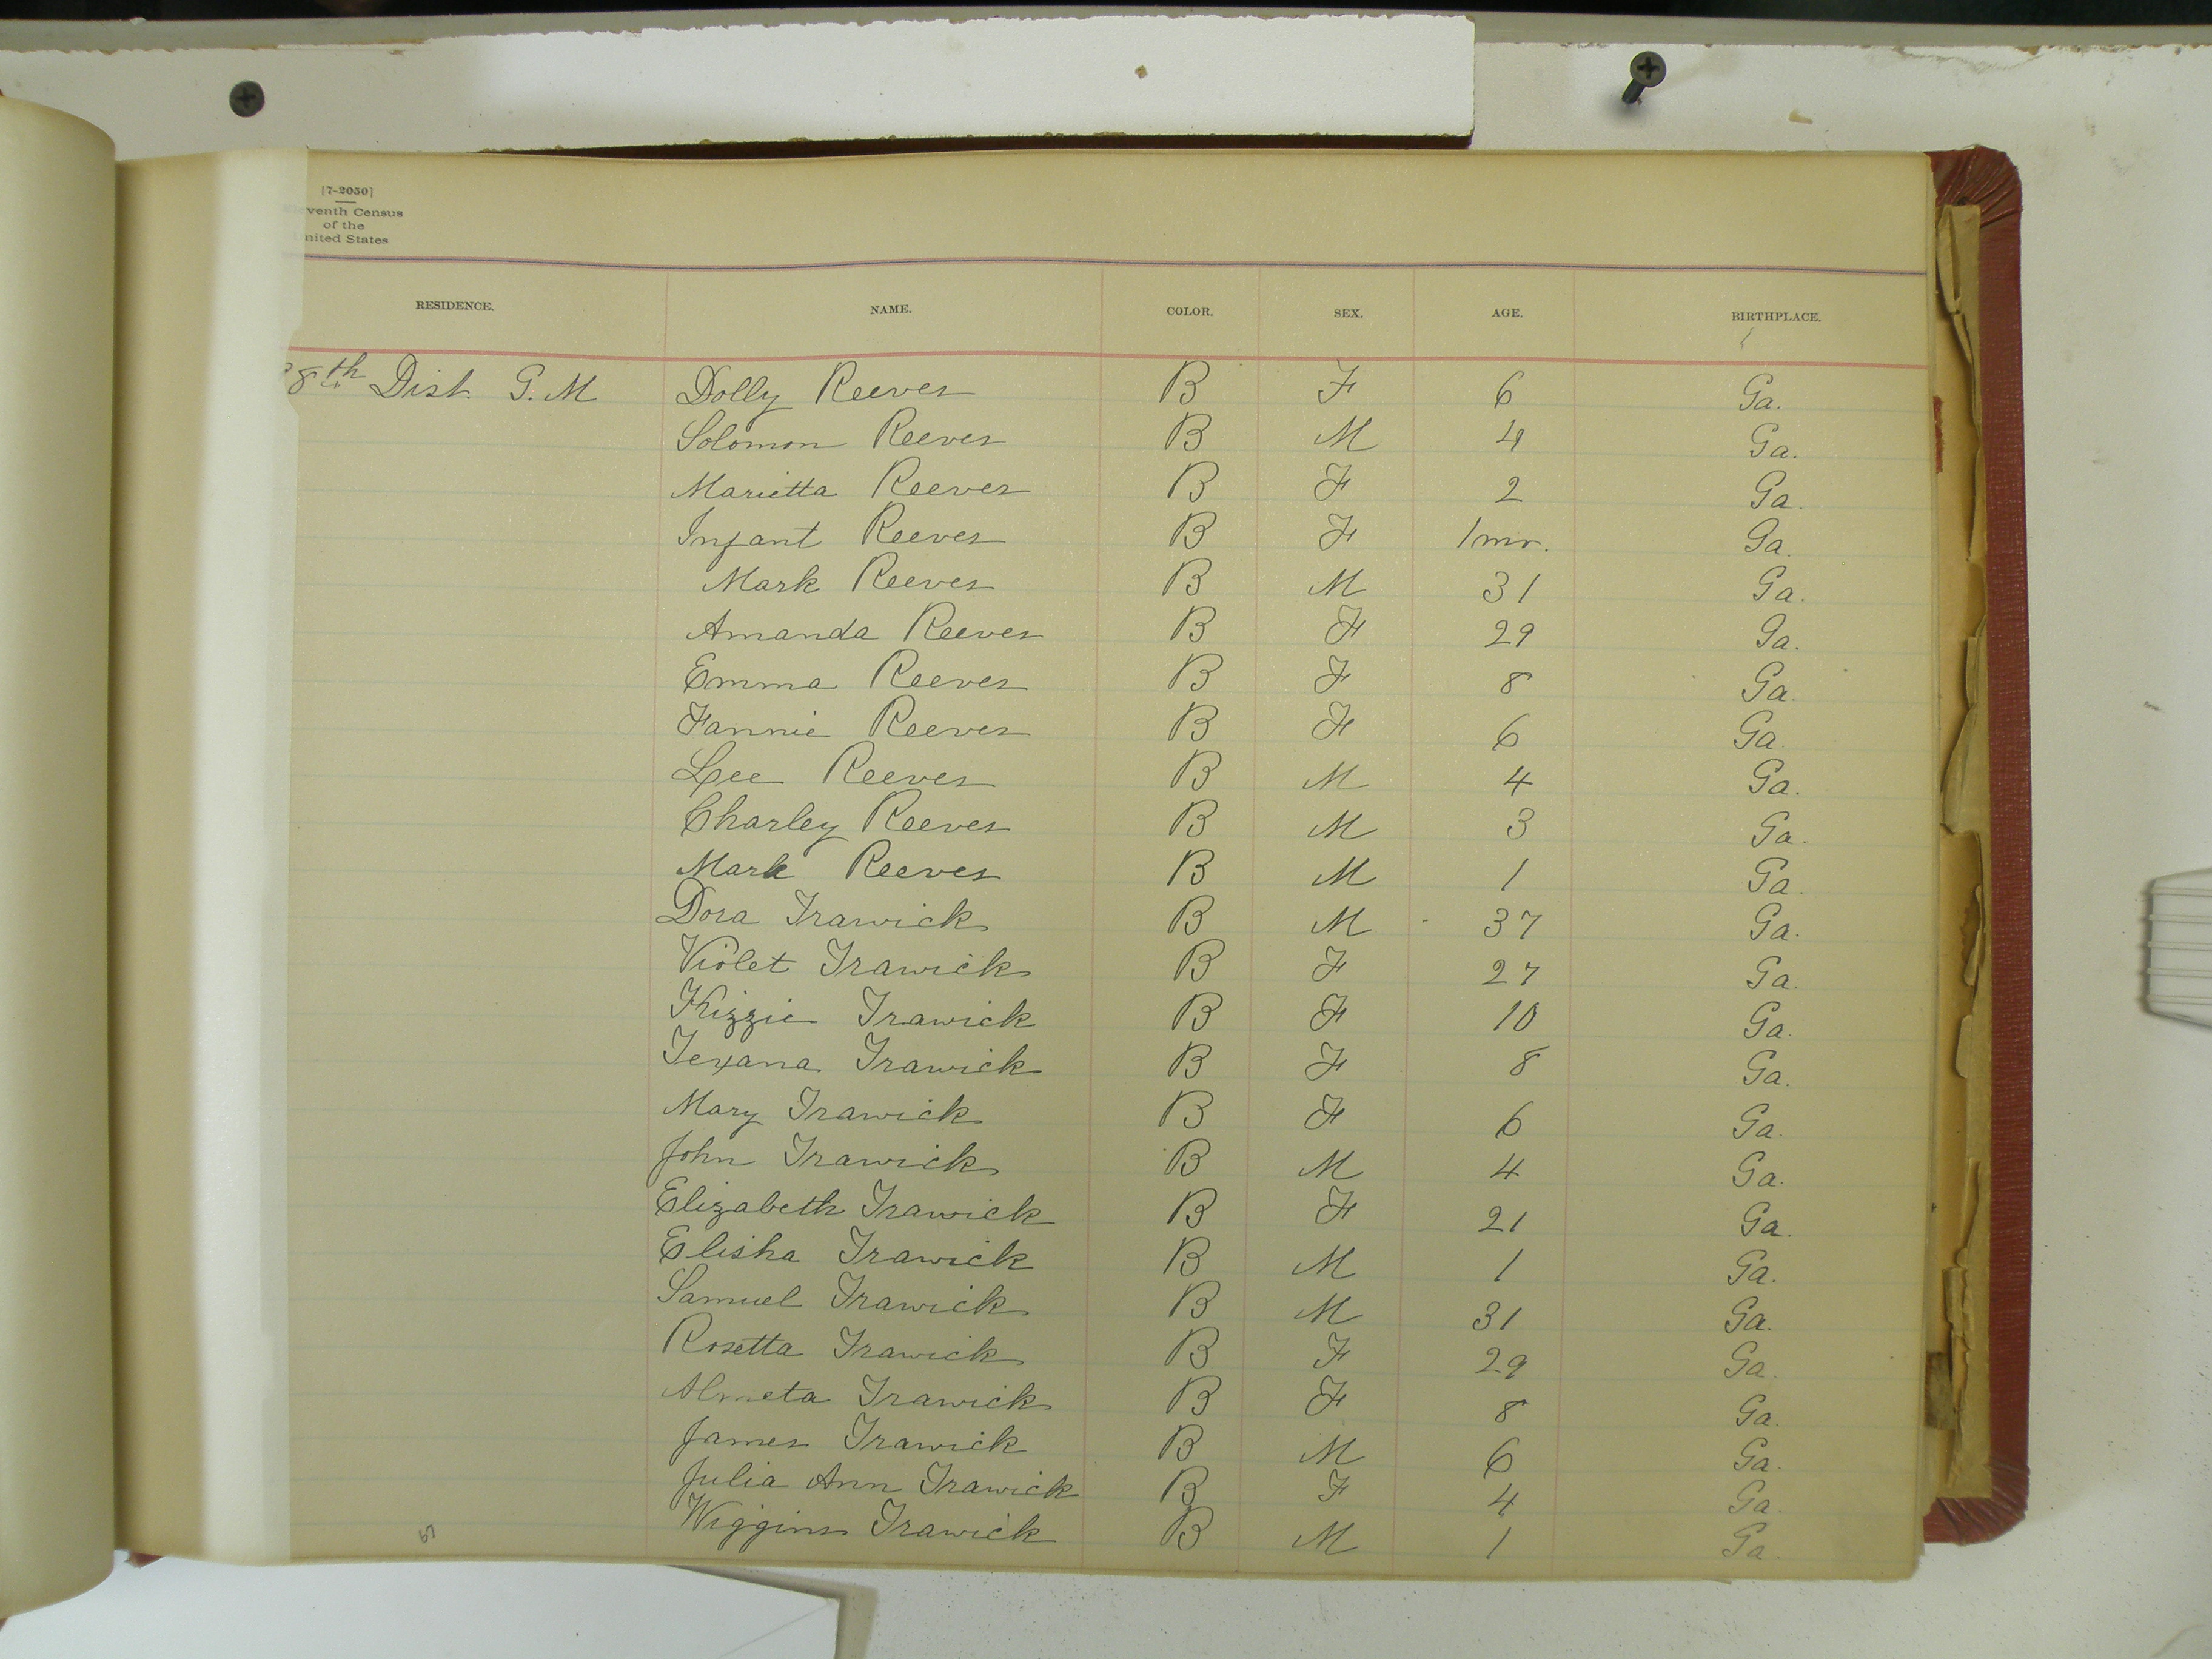 [7-2050]
venth Census
of the
nited States
RESIDENCE. NAME. COLOR. SEX. AGE. BIRTHPLACE.
8th Dist. G. M Dolly Reeves B F 6 Ga.
Solomon Reeves B M 4 Ga.
Marietta Reeves B F 2 Ga.
Infant Reeves B F 1 mo. Ga.
Mark Reeves B M 31 Ga.
Amanda Reeves B F 29 Ga.
Emma Reeves B F 8 Ga.
Fannie Reeves B F 6 Ga.
Lee Reeves B M 4 Ga.
Charley Reeves B M 3 Ga.
Mark Reeves B M 1 Ga.
Dora Trawick B M 37 Ga.
Violet Trawick B F 27 Ga.
Kizzie Trawick B F 10 Ga.
Texana Trawick B F 8 Ga.
Mary Trawick B F 6 Ga.
John Trawick B M 4 Ga.
Elizabeth Trawick B F 21 Ga.
Elisha Trawick B M 1 Ga.
Samuel Trawick B M 31 Ga.
Rosetta Trawick B F 29 Ga.
Almeta Trawick B F 8 Ga.
James Trawick B M 6 Ga.
Julia Ann Trawick B F 4 Ga.
Wiggins Trawick B M 1 Ga.